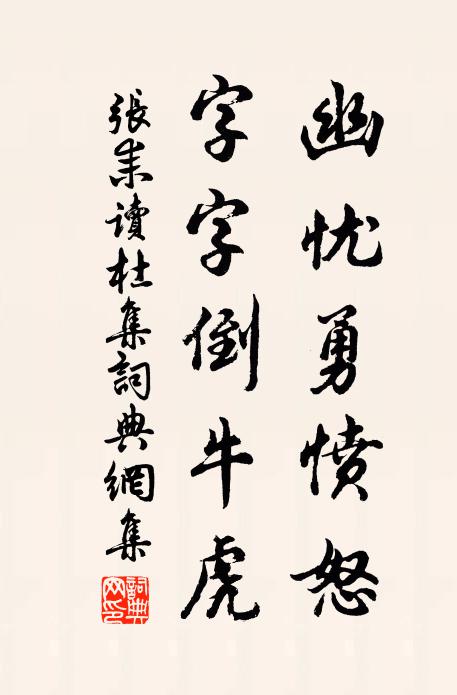 幽忧勇愤怒
字字倒牛虎
張耒讀杜集詞典網集
詞典网印